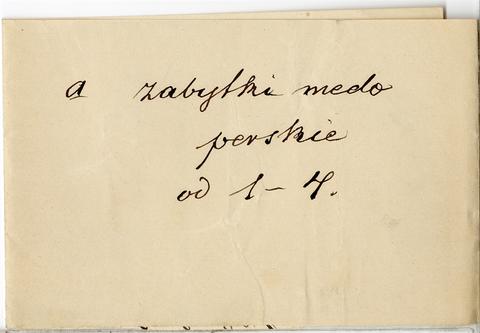 a zabytki medo
perskie
od 1-4.